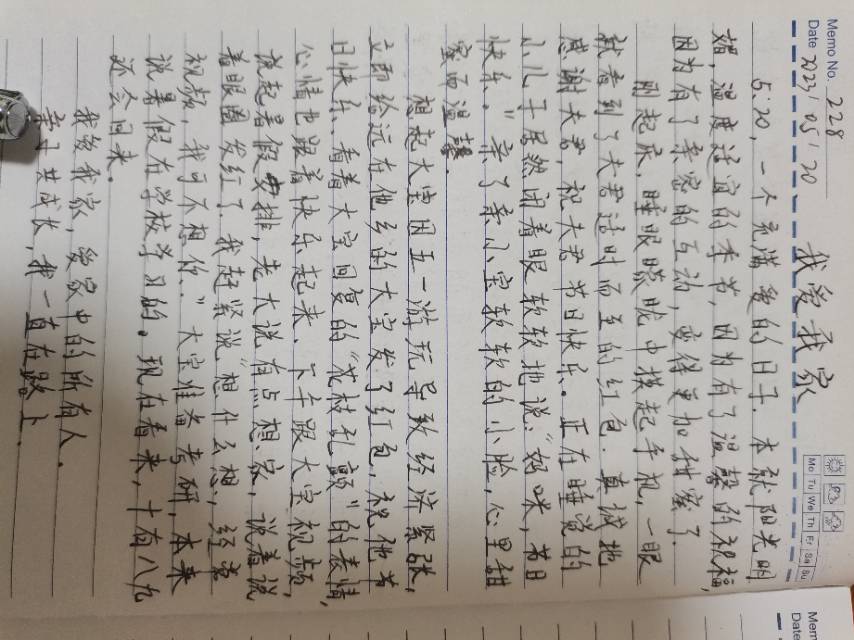 Memo No. 228
Date 2023 / 05 / 20
Mo Tu We Th Fr Sa Su
我爱我家
5.20，一个充满爱的日子．本就阳光明
媚，温度适宜的季节，因为有了温馨的祝福，
因为有了亲密的互动，变得更加甜蜜了．
刚起床，睡眼朦胧中摸起手机，一眼
就看到了夫君适时而至的红包．真诚地
感谢夫君，祝夫君节日快乐。正在睡觉的
小儿子居然闭着眼软软地说："妈咪，节日
快乐。"亲了亲小宝软软的小脸，心里甜
蜜而温馨．
想起大宝因五一游玩导致经济紧张，
立即给远在他乡的大宝发了红包，祝他节
日快乐、看着大宝回复的"花枝乱颤"的表情，
心情也跟着快乐起来．下午跟大宝视频，
说起暑假安排，老大说有点想家，说着说
着眼圈发红了．我赶紧说"想什么想，经常
视频，我可不想你．"大宝准备考研，本来
说暑假在学校学习的。现在看来，十有八九
还会回来．
我爱我家，爱家中的所有人．
亲子共成长，我一直在路上．
Mem
Date